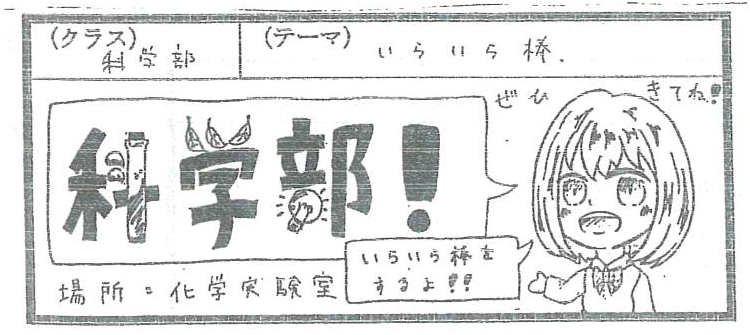 (クラス)
科学部
(テーマ)
いらいら棒、
ぜひ きてね!!
科学部!
いらいら棒を
するよ!!
場所:化学実験室